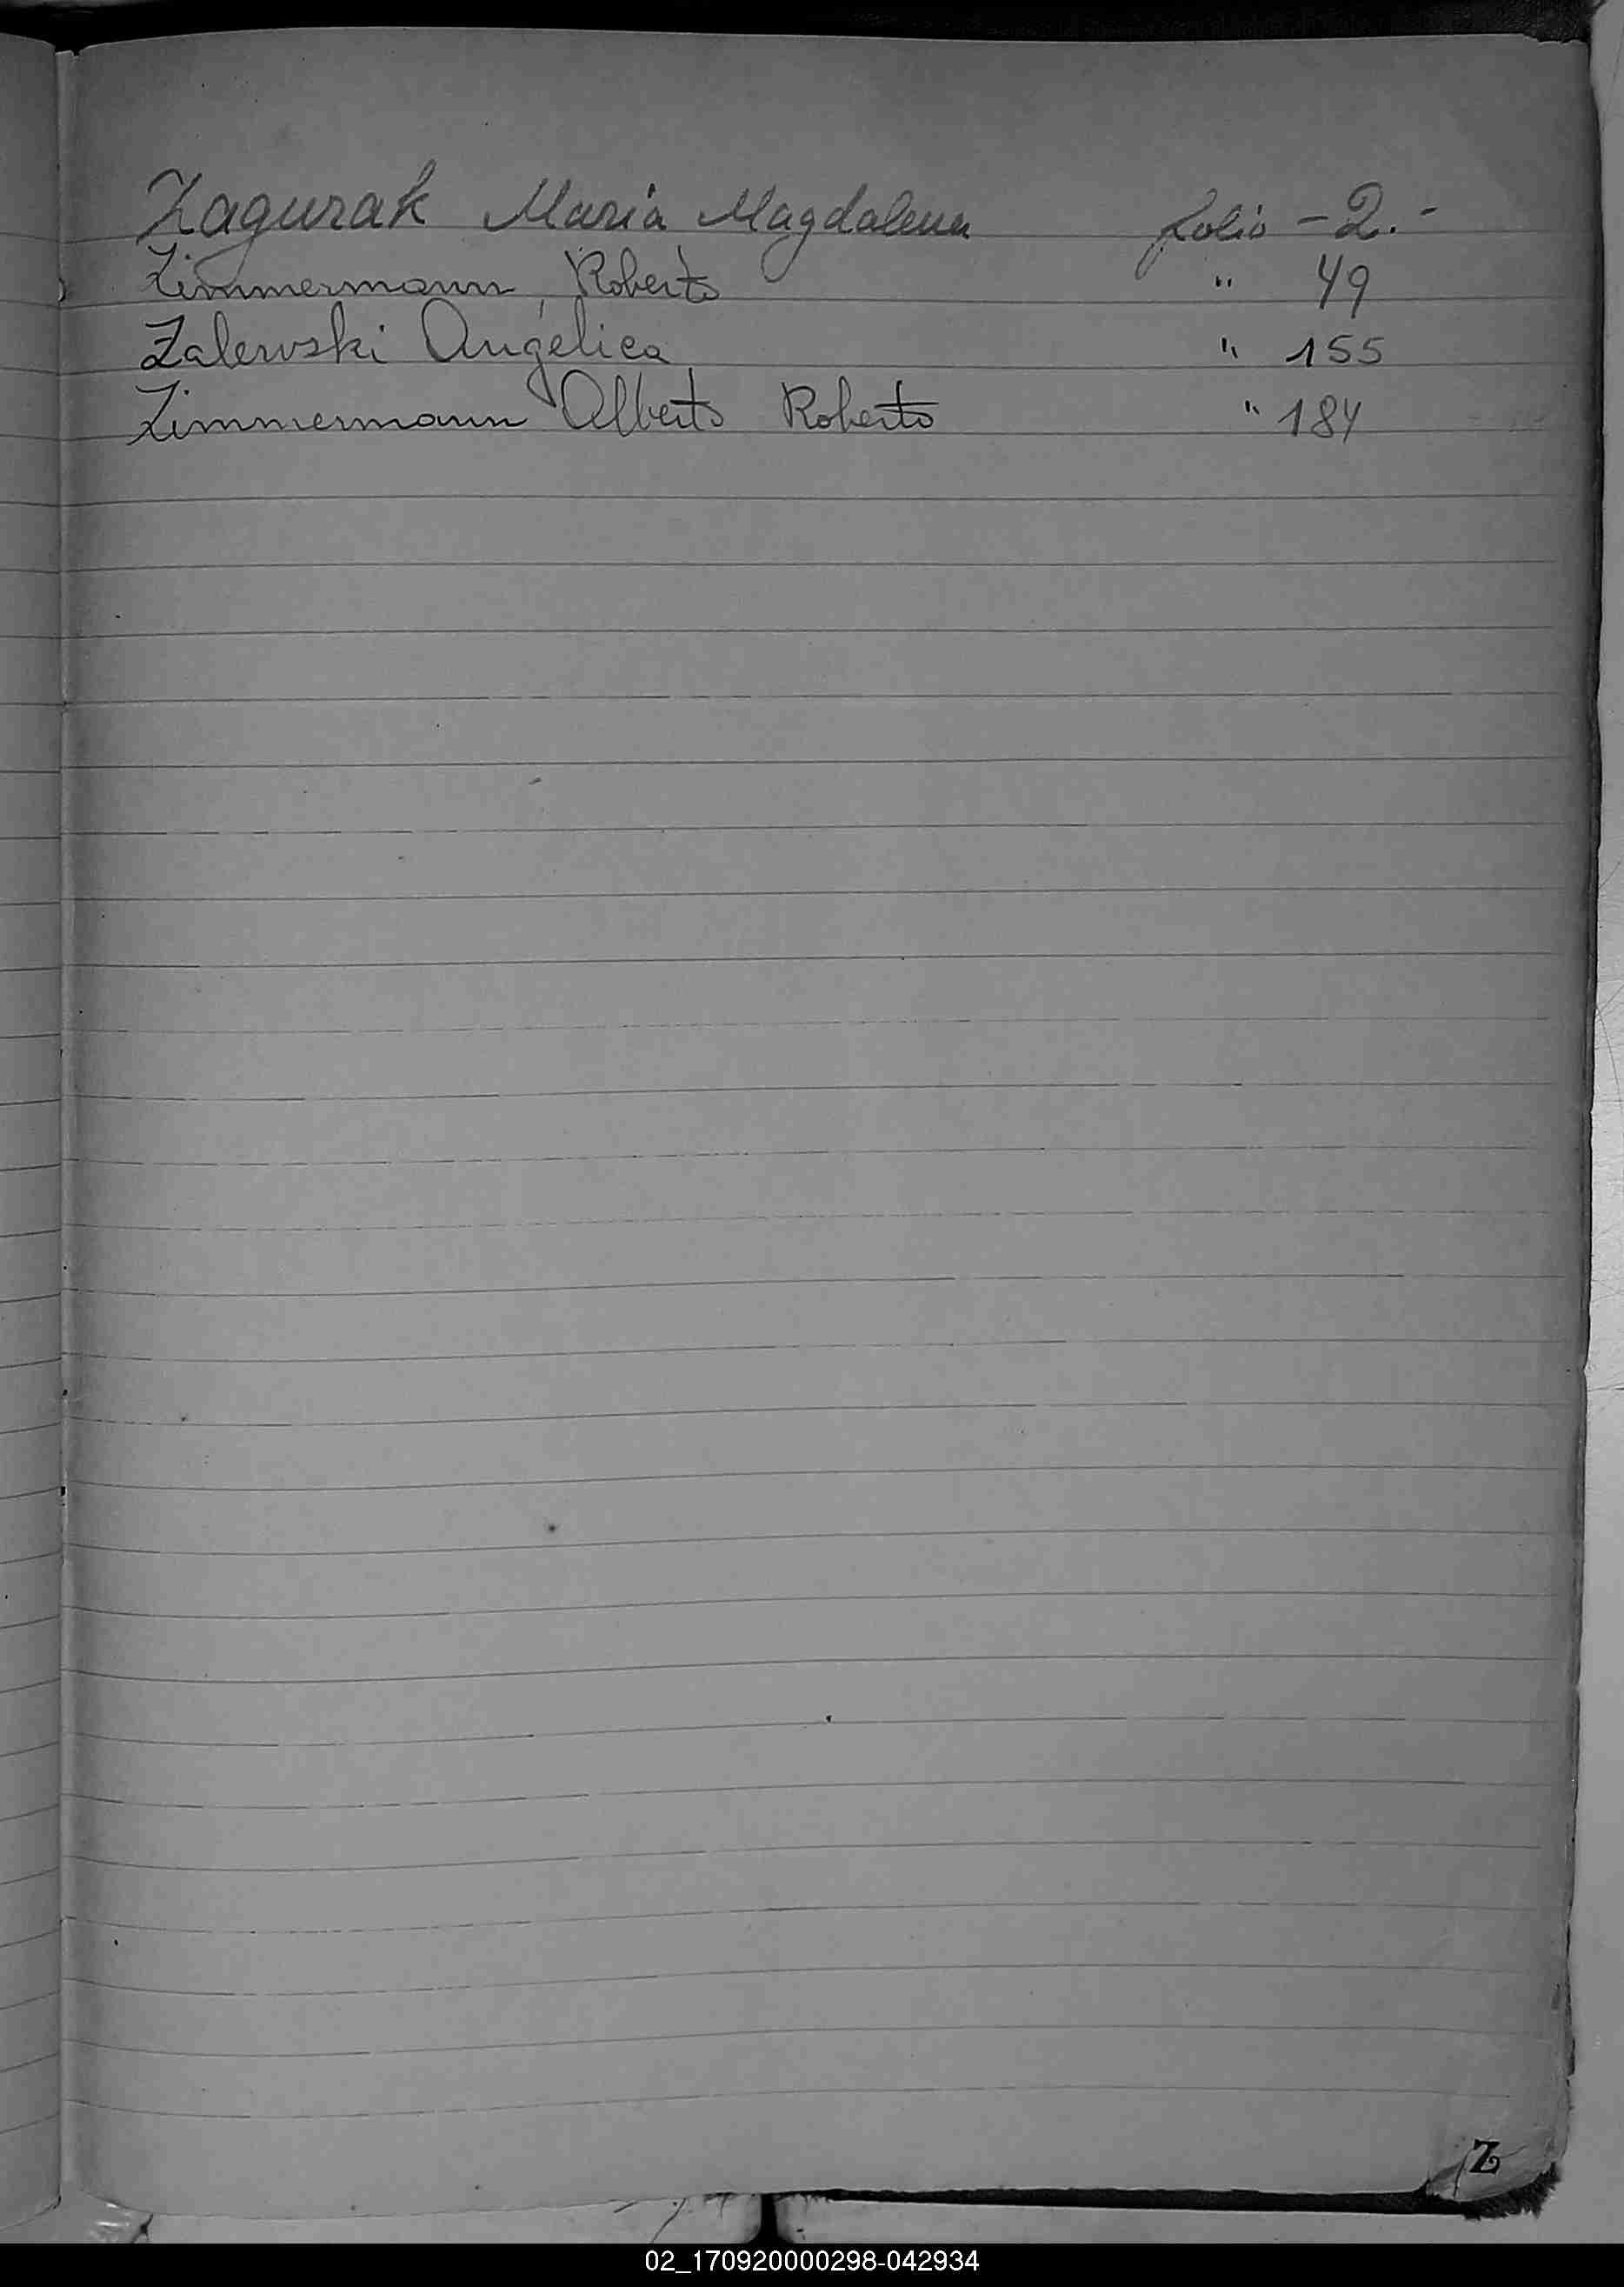 Zagurak Maria Magdalena folio - 2. -
Zimmermann, Roberto " 49
Zalewski Angélica " 155
Zimmermann Alberto Roberto " 184
Z
02_170920000298-042934